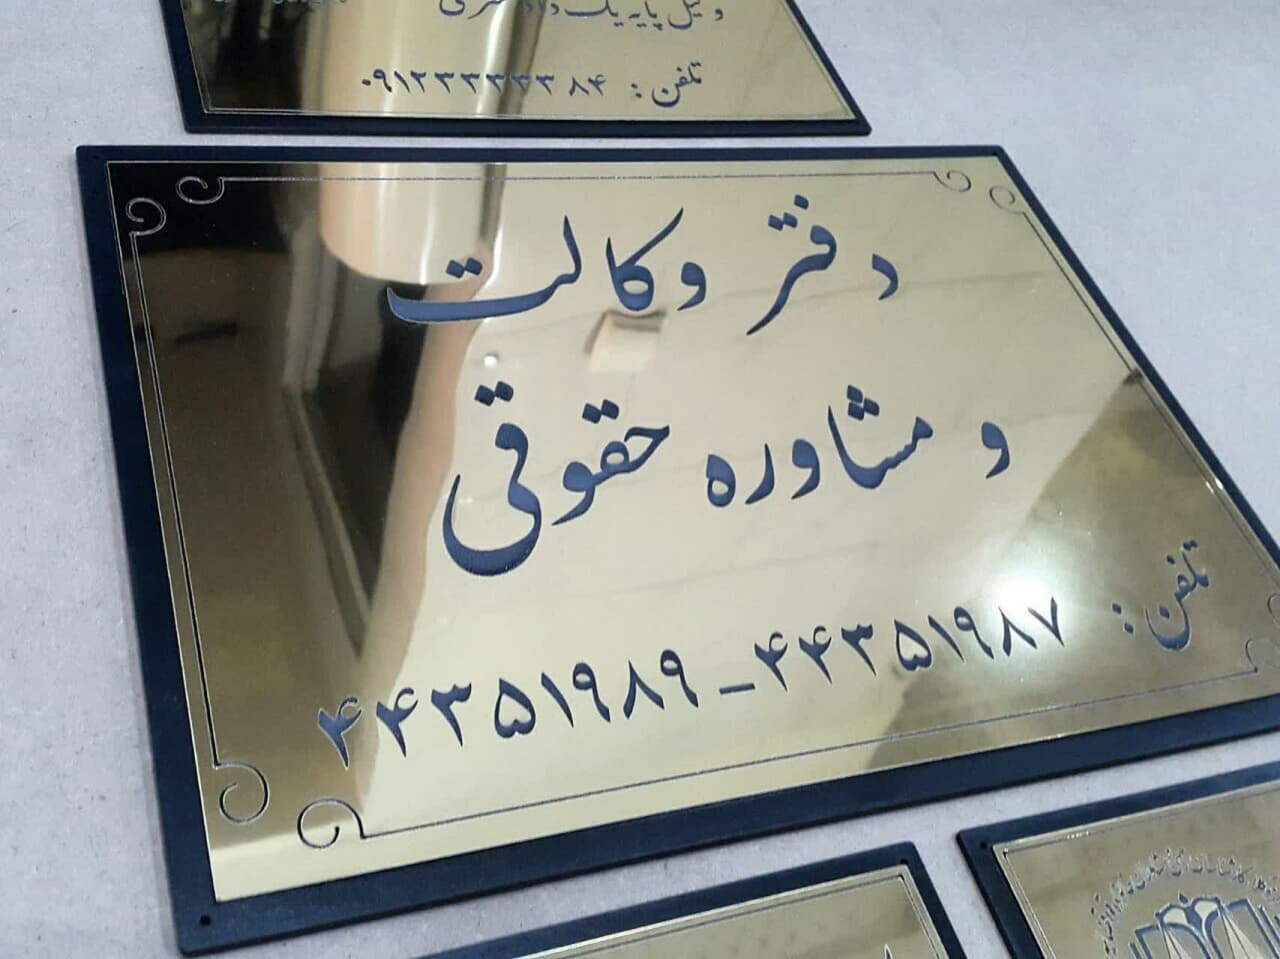 وکیل پایه یک دادگستری
تلفن: ۰۹۱۲۳۳۳۳۳۸۴
دفتر وکالت
و مشاوره حقوقی
تلفن: ۴۴۳۵۱۹۸۷ - ۴۴۳۵۱۹۸۹